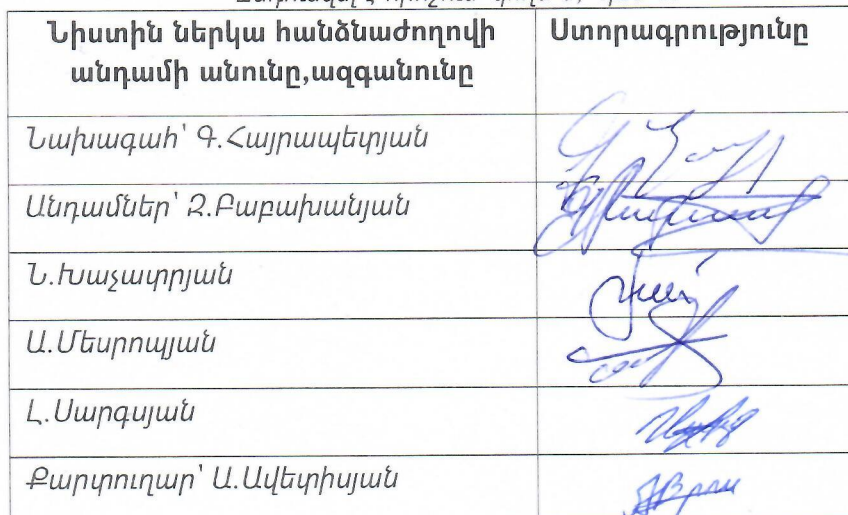 Նիստին ներկա հանձնաժողովի Ստորագրությունը
անդամի անունը,ազգանունը
Նախագահ՝ Գ.Հայրապետյան
Անդամներ՝ Զ.Բաբախանյան
Ն.Խաչատրյան
Ա.Մեսրոպյան
Լ.Սարգսյան
Քարտուղար՝ Ա.Ավետիսյան